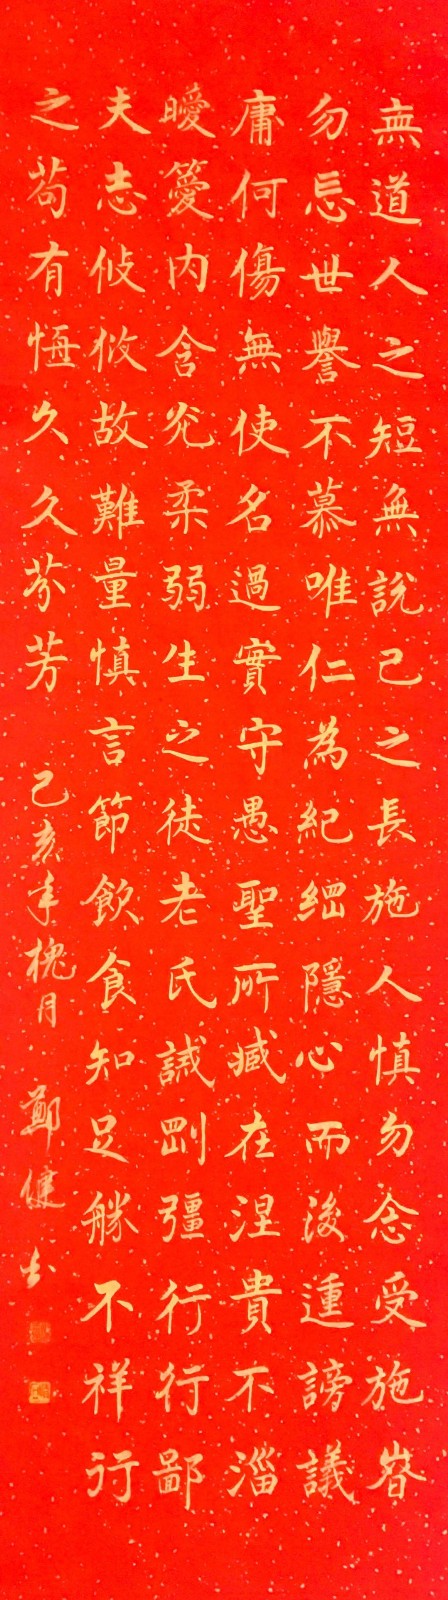 無道人之短無說己之長施人慎勿念受施眘
勿忘世譽不慕唯仁為紀綱隱心而後運謗議
庸何傷無使名過實守愚聖所臧在涅貴不淄
曖內含光柔弱生之徒老氏誡剛彊行行鄙
夫志攸攸故難量慎言節飲食知足勝不祥行
之苟有恆久久芬芳
己亥年槐月 鄭健書